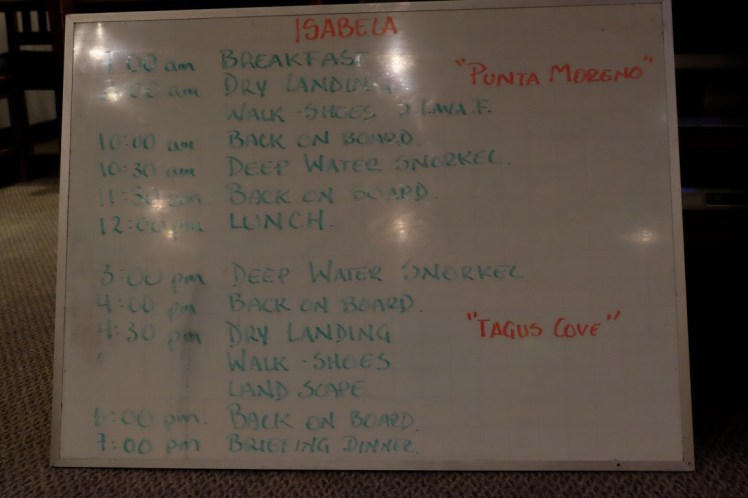 ISABELA
7:00 am BREAKFAST
"PUNTA MORENO"
8:00 am DRY LANDING
WALK - SHOES LAVA F.
10:00 am BACK ON BOARD.
10:30 am DEEP WATER SNORKEL.
11:30 am BACK ON BOARD.
12:00 pm LUNCH.
3:00 pm DEEP WATER SNORKEL
4:00 pm BACK ON BOARD.
4:30 pm DRY LANDING "TAGUS COVE"
WALK - SHOES
LAND SCAPE
6:00 pm. BACK ON BOARD.
7:00 pm BRIEFING DINNER.